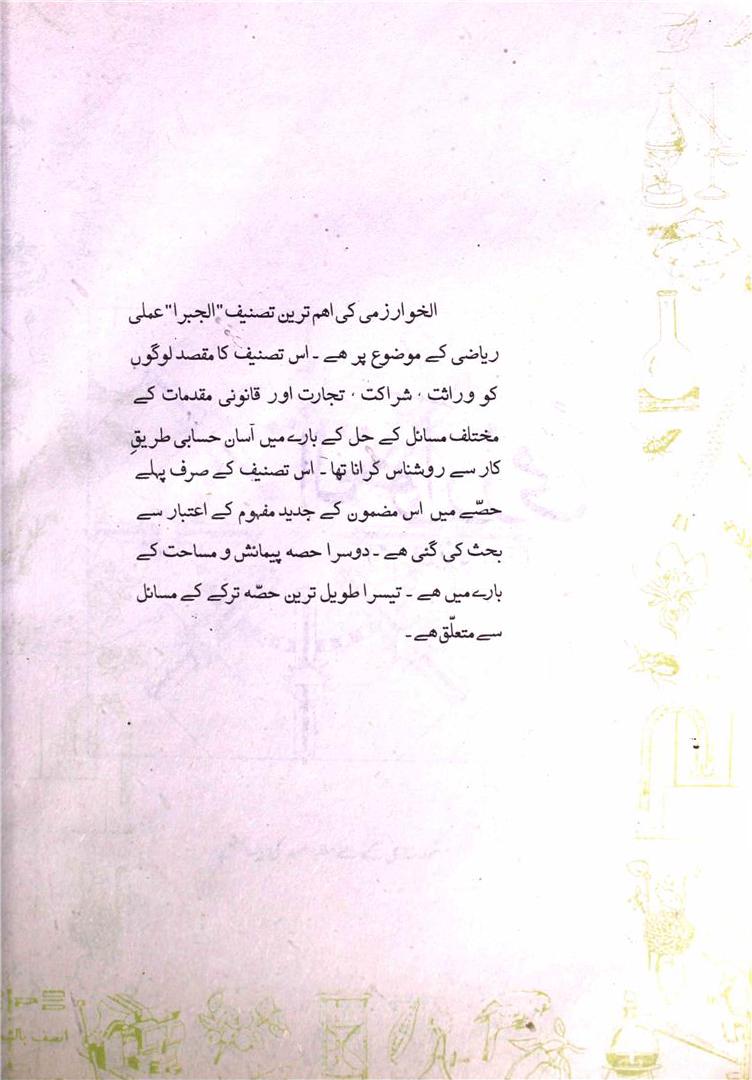 الخوارزمی کی اھم ترین تصنیف "الجبرا" عملی
ریاضی کے موضوع پر ھے ۔ اس تصنیف کا مقصد لوگوں
کو وراثت ، شراکت ، تجارت اور قانونی مقدمات کے
مختلف مسائل کے حل کے بارے میں آسان حسابی طریقِ
کار سے روشناس کرانا تھا ۔ اس تصنیف کے صرف پہلے
حصّے میں اس مضمون کے جدید مفہوم کے اعتبار سے
بحث کی گئی ھے ۔ دوسرا حصہ پیمائش و مساحت کے
بارے میں ھے ۔ تیسرا طویل ترین حصّہ ترکے کے مسائل
سے متعلّق ھے ۔